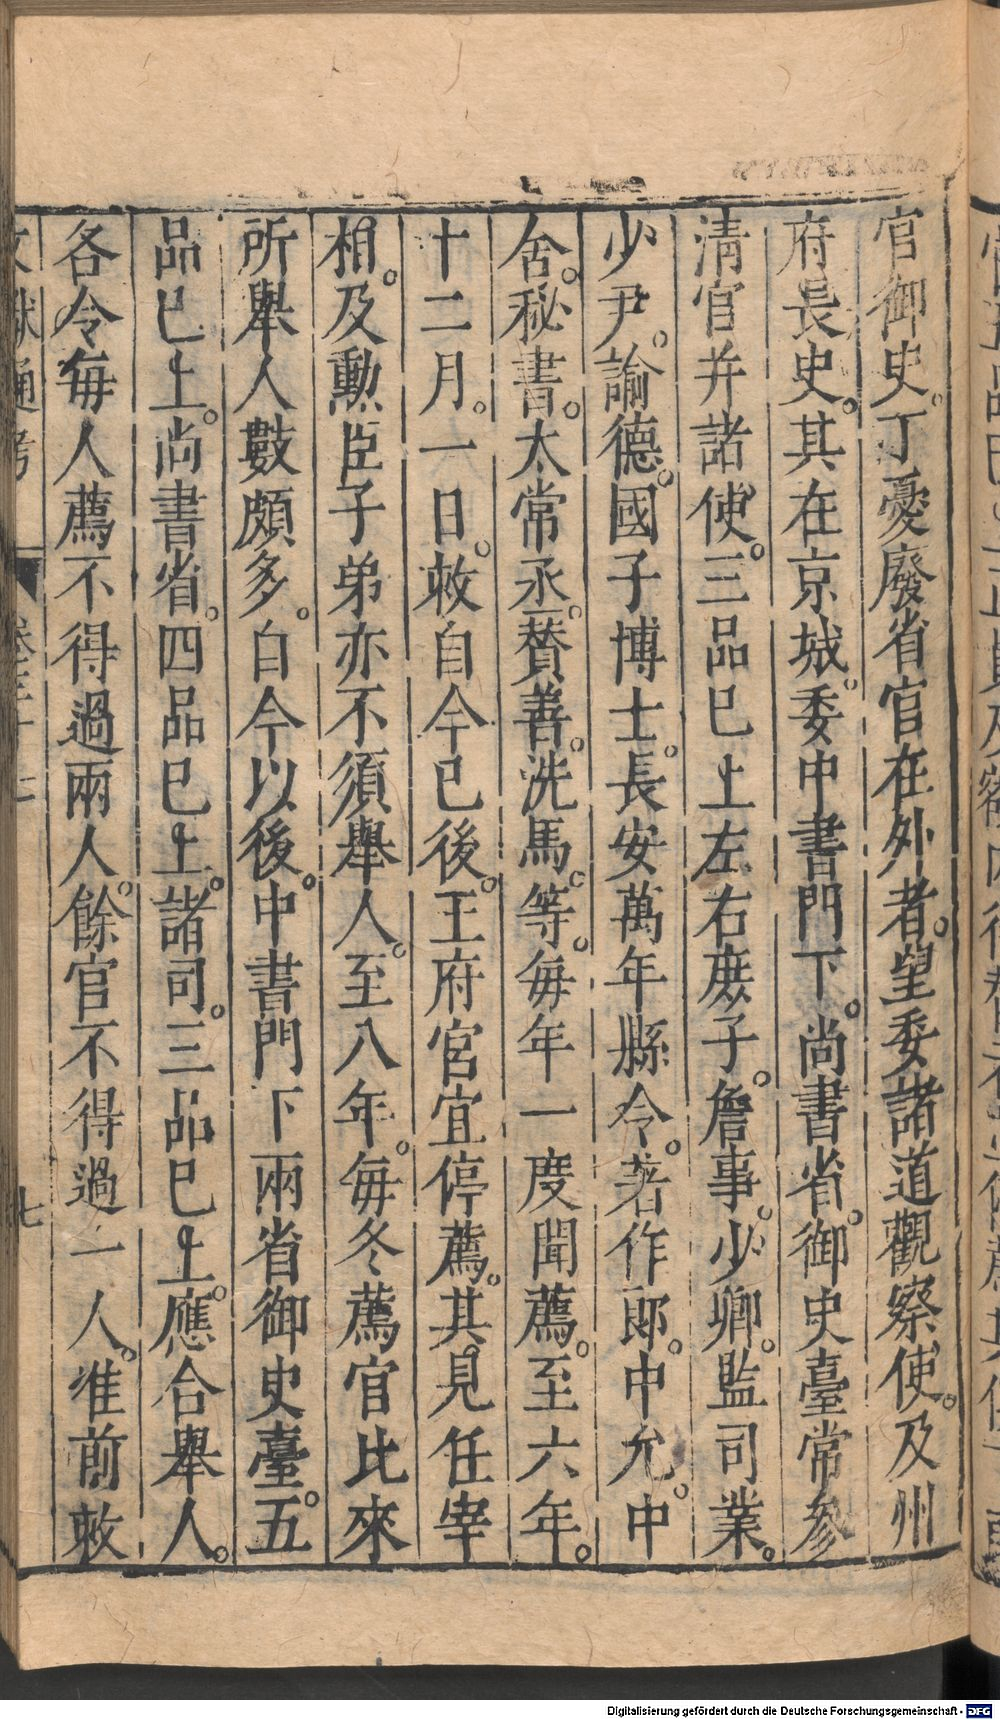 官御史。丁憂廢省官在外者。望委諸道觀察使。及州
府長史。其在京城。委中書門下。尚書省。御史臺常參
清官并諸使。三品已上左右庶子。詹事。少卿。監司業。
少尹。諭德。國子博士。長安萬年縣令。著作郎。中允。中
舍。秘書。太常丞。贊善。洗馬。等。每年一度聞薦。至六年。
十二月。一日。敕自今已後。王府官宜停薦。其見任宰
相。及勲臣子弟亦不須舉人。至八年。每冬薦官比來
所舉人數頗多。自今以後。中書門下兩省御史臺。五
品已上。尚書省。四品已上。諸司。三品已上。應合舉人。
各令每人薦不得過兩人。餘官不得過一人。准前敕
文獻通考 卷三十七 七
Digitalisierung gefördert durch die Deutsche Forschungsgemeinschaft - DFG